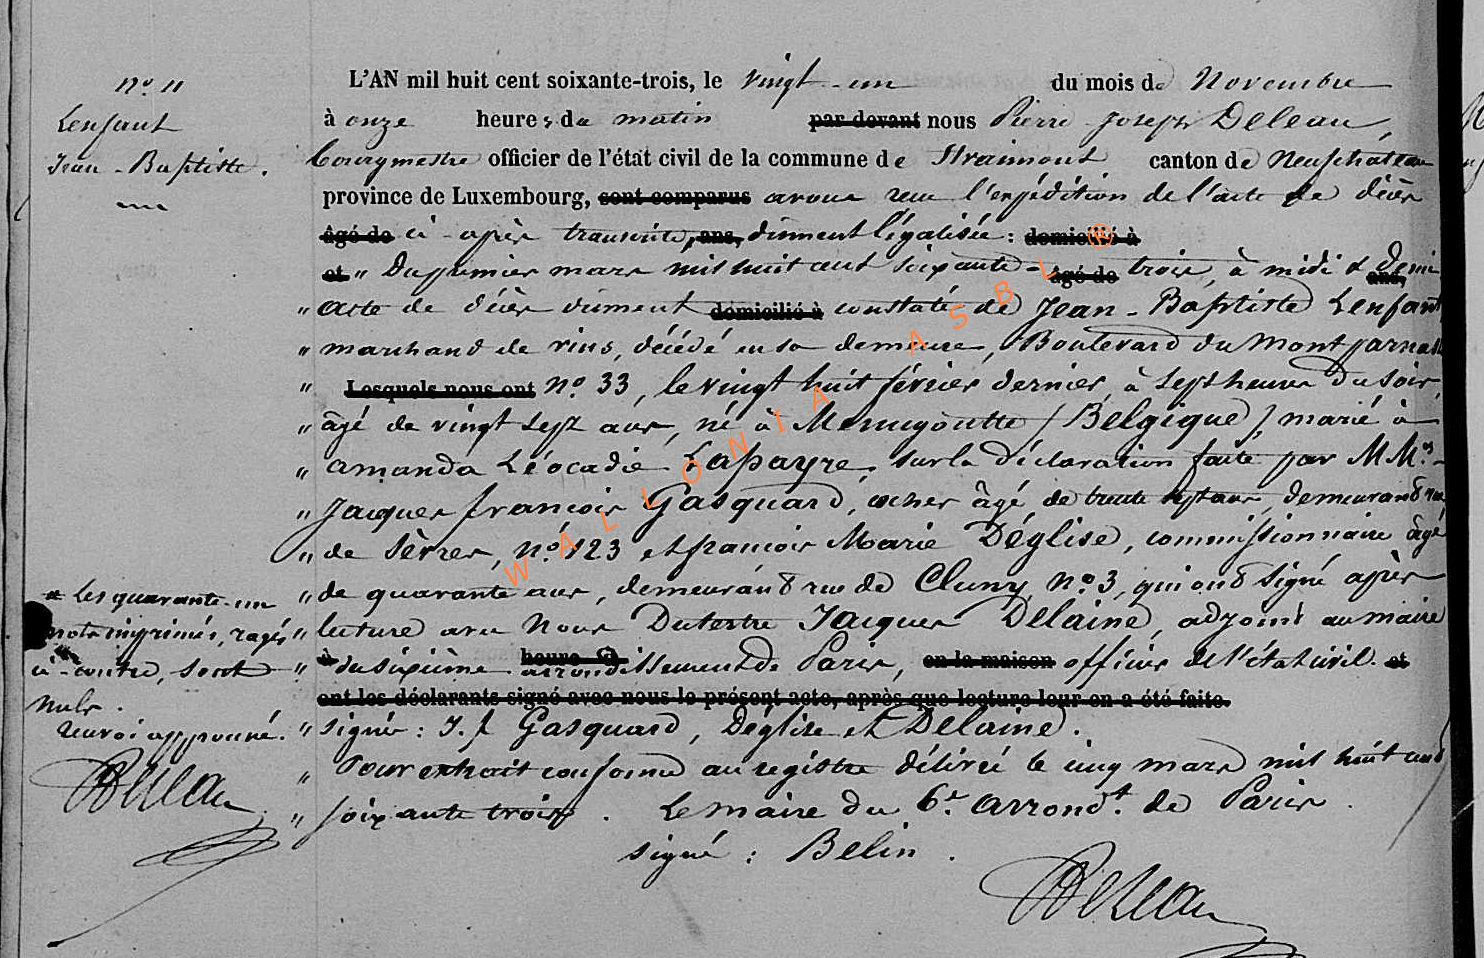 nº 11
Lenfant
Jean-Baptiste.
L'AN mil huit cent soixante-trois, le vingt-un du mois de Novembre
à onze heures du matin par devant nous Pierre Joseph Deleau,
bourgmestre officier de l'état civil de la commune de Straimont canton de Neufchâteau
province de Luxembourg, sont comparus avons reçu l'expédition de l'acte de décès
âgé de ci-après transcrite, ans, dûment légalisée : domicilié à
et " Du premier mars mil huit cent soixante- âgé de trois, à midi & demi ans,
" acte de décès dûment domicilié à constaté de Jean-Baptiste Lenfant
" marchand de vins, décédé en sa demeure, Boulevard du Montparnasse
" Lesquels nous ont nº 33, le vingt huit février dernier, à sept heures du soir,
" âgé de vingt sept ans, né à Menugoutte (Belgique) marié à
" amanda Léocadie Lapayre, sur la déclaration faite par MM.rs
" Jacques françois Gasquard, cocher âgé de trente sept ans, demeurant rue
" de Sèvres, nº 123 et françois Marie Déglise, commissionnaire âgé
" de quarante ans, demeurant rue de Cluny, nº 3, qui ont signé après
" lecture avec Nous Dutertre Jacques Delaine, adjoint au maire
" à du sixième heure arrondissement de Paris, en la maison officier de l'état civil. et
ont les déclarants signé avec nous le présent acte, après que lecture leur en a été faite.
" signé : J. f Gasquard, Déglise et Delaine.
" Pour extrait conforme au registre délivré le cinq mars mil huit cent
" soixante trois. Le maire du 6e arrondt. de Paris.
signé : Belin.
Deleau
Les quarante-un
mots imprimés, rayés
ci-contre, sont
nuls.
renvoi approuvé.
Deleau
WALLONIA ASBL ®